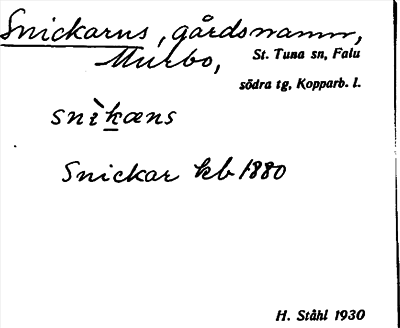 Snickarns, gårdsnamn,
Murbo, St. Tuna sn, Falu
södra tg, Kopparb. l.
snìkæns
Snickar kb 1880
H. Ståhl 1930